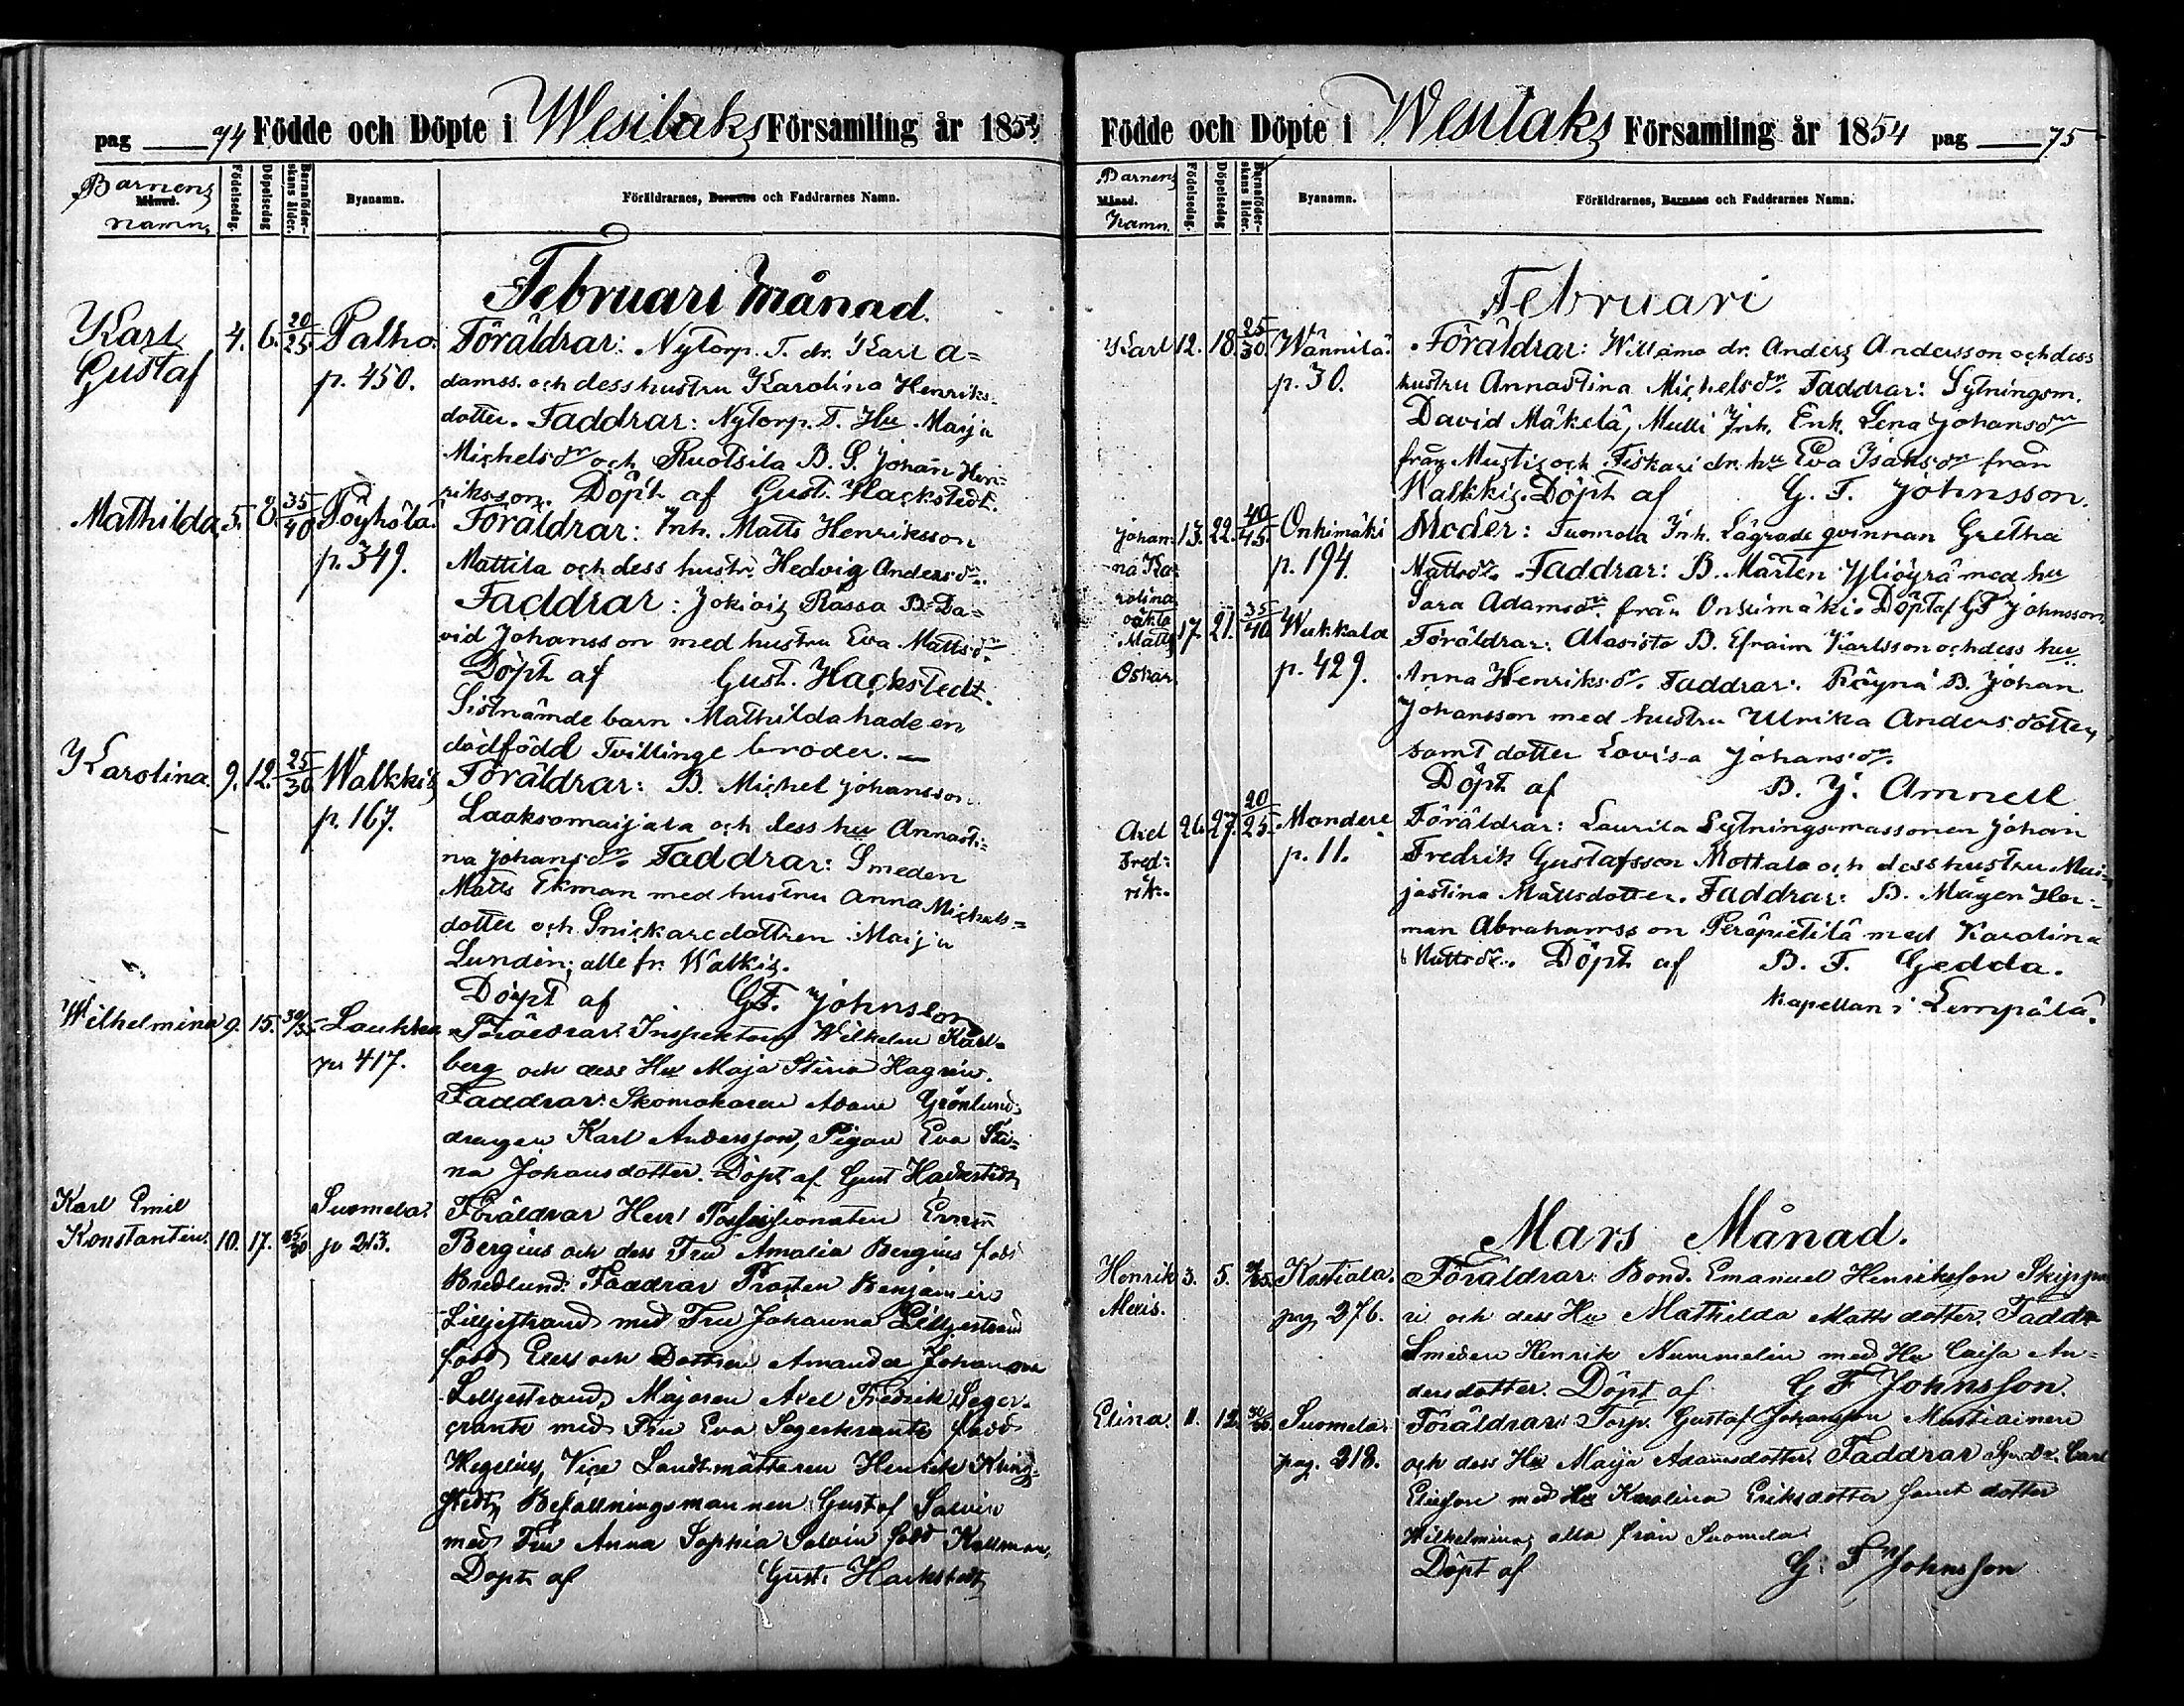 pag 74 Födde och Döpte i Wesilaks Församling år 1854
Barnens
Månad.
namn.
Födelsedag.
Döpelsedag
Barnaföderskans ålder.
Byanamn.
Föräldrarnes, Barnens och Faddrarnes Namn.
Februari Månad.
Karl 4. 6. 20/25. Palho. Föräldrar: Nytorp. T. dr. Karl A=
Gustaf p. 450. damss. och dess hustru Karolina Henriks-
dotter. Faddrar: Nytorp. T. Hu Maija
Michelsdr och Ruotsila B. S. Johan Hen-
riksson. Döpt af Gust. Hackstedt.
Mathilda 5. 8. 35/40 Pöyhölä. Föräldrar: Inh. Matts Henriksson
p. 349. Mattila och dess hustr. Hedvig Andersdr.
Faddrar: Jokiois Rässä B. Da=
vid Johansson med hustru Eva Mattsdr.
Döpt af Gust. Hackstedt.
Sistnämde barn Mathilda hade en
dödfödd Tvillinge broder. —
Karolina. 9. 12. 25/30 Walkkis Föräldrar: B. Michel Johansson
p. 167. Laaksomaijala och dess hu Annasti=
na Johansdr. Faddrar: Smeden
Matts Ekman med hustru Anna Michels=
dotter och Snickare dottren Maija
Lundin; alle fr. Walkis.
Döpt af G.F. Johnsson
Wilhelmina 9. 15. 30/35 Laukko Föräldrar: Inspektorn Wilhelm Karl-
p. 417. berg och dess Hu Maja Stina Hagrén.
Faddrar: Skomakaren Adam Grönlund
drengen Karl Andersson, Pigan Eva Sti=
na Johansdotter. Döpt af Gust Hackstedt
Karl Emil Suomela. Föräldrar Herr Possessionaten
Konstantin 10. 17. p 213. Bergius och dess Fru Amalia Bergius född
Bredlund. Faddrar Prosten Benjamin
Lilljestrand med Fru Johanna Lilljestrand
född och Dottren Amanda Johanna
Lilljestrand, Majoren Axel Fredrik Seger-
crantz med Fru Eva Segerkrantz född
Wegelius, Vice Landtmätaren Henrik Kling-
stedt, Befallningsmannen Gustaf Salvin
med Fru Anna Sophia Salvin född
Döpt af Gust. Hackstedt
Födde och Döpte i Wesilaks Församling år 1854 pag 75
Barnens
Månad.
Namn.
Födelsedag.
Döpelsedag
Barnaföderskans ålder.
Byanamn.
Föräldrarnes, Barnens och Faddrarnes Namn.
Februari
Karl 12. 18. 25/30. Wännilä. Föräldrar: Willamo dr. Anders Andersson och dess
p. 30. hustru Annastina Michelsdr. Faddrar: Sytningsm.
David Mäkelä, Mulli Inh. Enk. Lena Johansdr
från Mustis och Fiskari dr. hu Eva Isaksdr från
Walkkis. Döpt af G. F. Johnsson.
Johan= 13. 22. 40/45. Onkimäki Moder: Tuomola Inh. Lägrade qvinnan Gretha
na Ka= p. 194. Mattsdr. Faddrar: B. Mårten Yliöyrä med hu
rolina Sara Adamsdr. från Onkimäki. Döpt af G F Johnsson
oäkta
Matts 17. 21. 35/40 Wukkala Föräldrar: Alasisto B. Efraim Karlsson och dess hu
Oskar p. 429. Anna Henriksdr. Faddrar: Räynä B. Johan
Johansson med hustru Ulrika Andersdotter,
samt dotter Lovisa Johansdr.
Döpt af B. J. Amnell
Axel 26. 27. 20/25. Mandere Föräldrar: Laurila Sytningsmassonen Johan
Fred= p. 11. Fredrik Gustafsson Mottala och dess hustru Mai-
rik. jastina Mattsdotter. Faddrar: B. Mågen Her-
man Abrahamsson Peräpietilä med Karolina
Mattsdr. Döpt af B. F. Gedda.
Kapellan i Lempälä.
Mars Månad.
Henrik 3. 5. Kostiala. Föräldrar: Bond. Emanuel Henriksson Skippa
Alexis. pag. 276. ri och dess Hu Mathilda Mattsdotter. Faddr
Smeden Henrik Nummelin med Hu Caisa An=
dersdotter. Döpt af G F Johnsson.
Elina. 11. 12. Suomela. Föräldrar: Torp. Gustaf Johansson Mustiainen
pag. 218. och dess Hu Maija Adamsdotter. Faddrar Dr. Carl
Eliasson med Hu Karolina Eriksdotter samt dotter
Wilhelmina, alla från Suomela
Döpt af G. F Johnsson